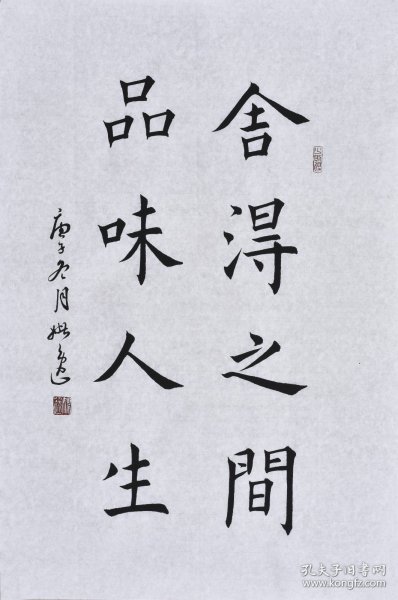 舍得之間
品味人生
庚子冬月
孔夫子旧书网
www.kongfz.com